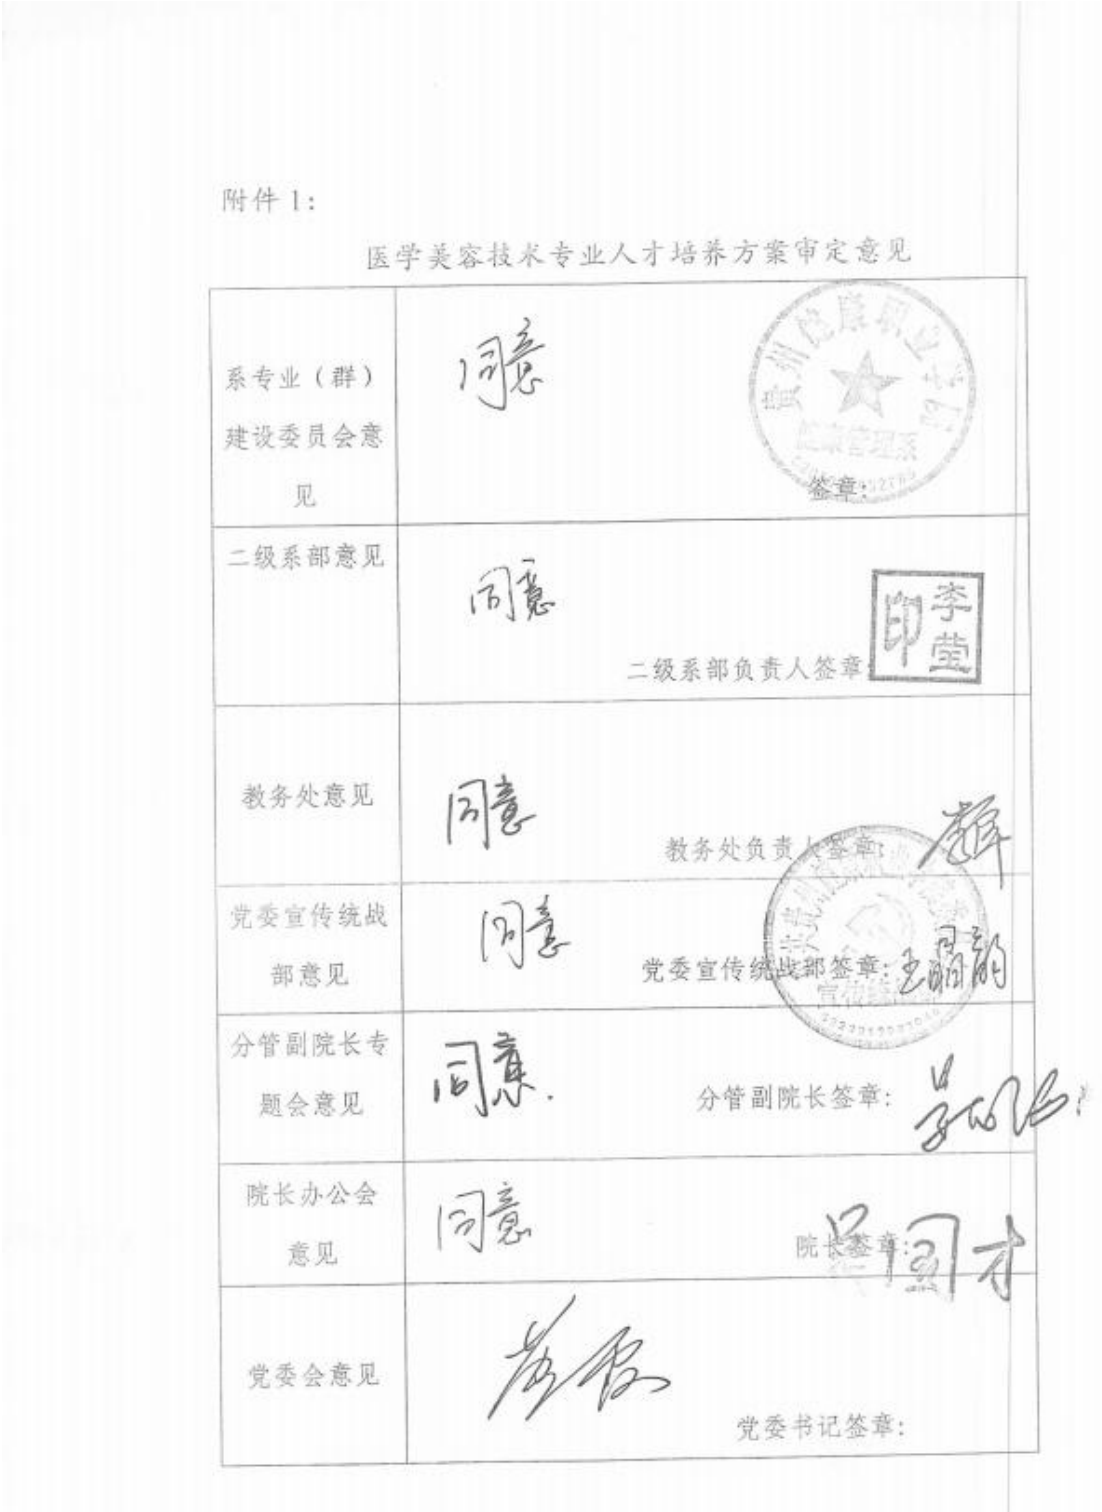 附件 1:
医学美容技术专业人才培养方案审定意见
系专业（群）
建设委员会意
见
同意
贵州健康职业学院
健康管理系
签章:
二级系部意见
同意
二级系部负责人签章
李莹
印
教务处意见
同意
教务处负责人签章:
党委宣传统战
部意见
同意
党委宣传统战部签章:
王晶韵
宣传统战部
分管副院长专
题会意见
同意.
分管副院长签章:
院长办公会
意见
同意
院长签章:
吴国才
党委会意见
党委书记签章: